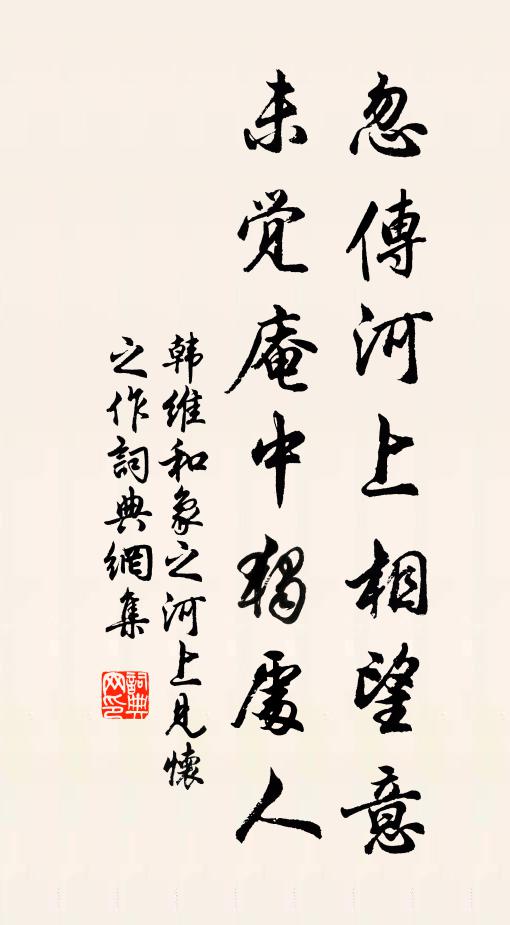 忽傳河上相望意
未覚庵中獨處人
韩維和象之河上見懷
之作詞典網集
詞典
网印